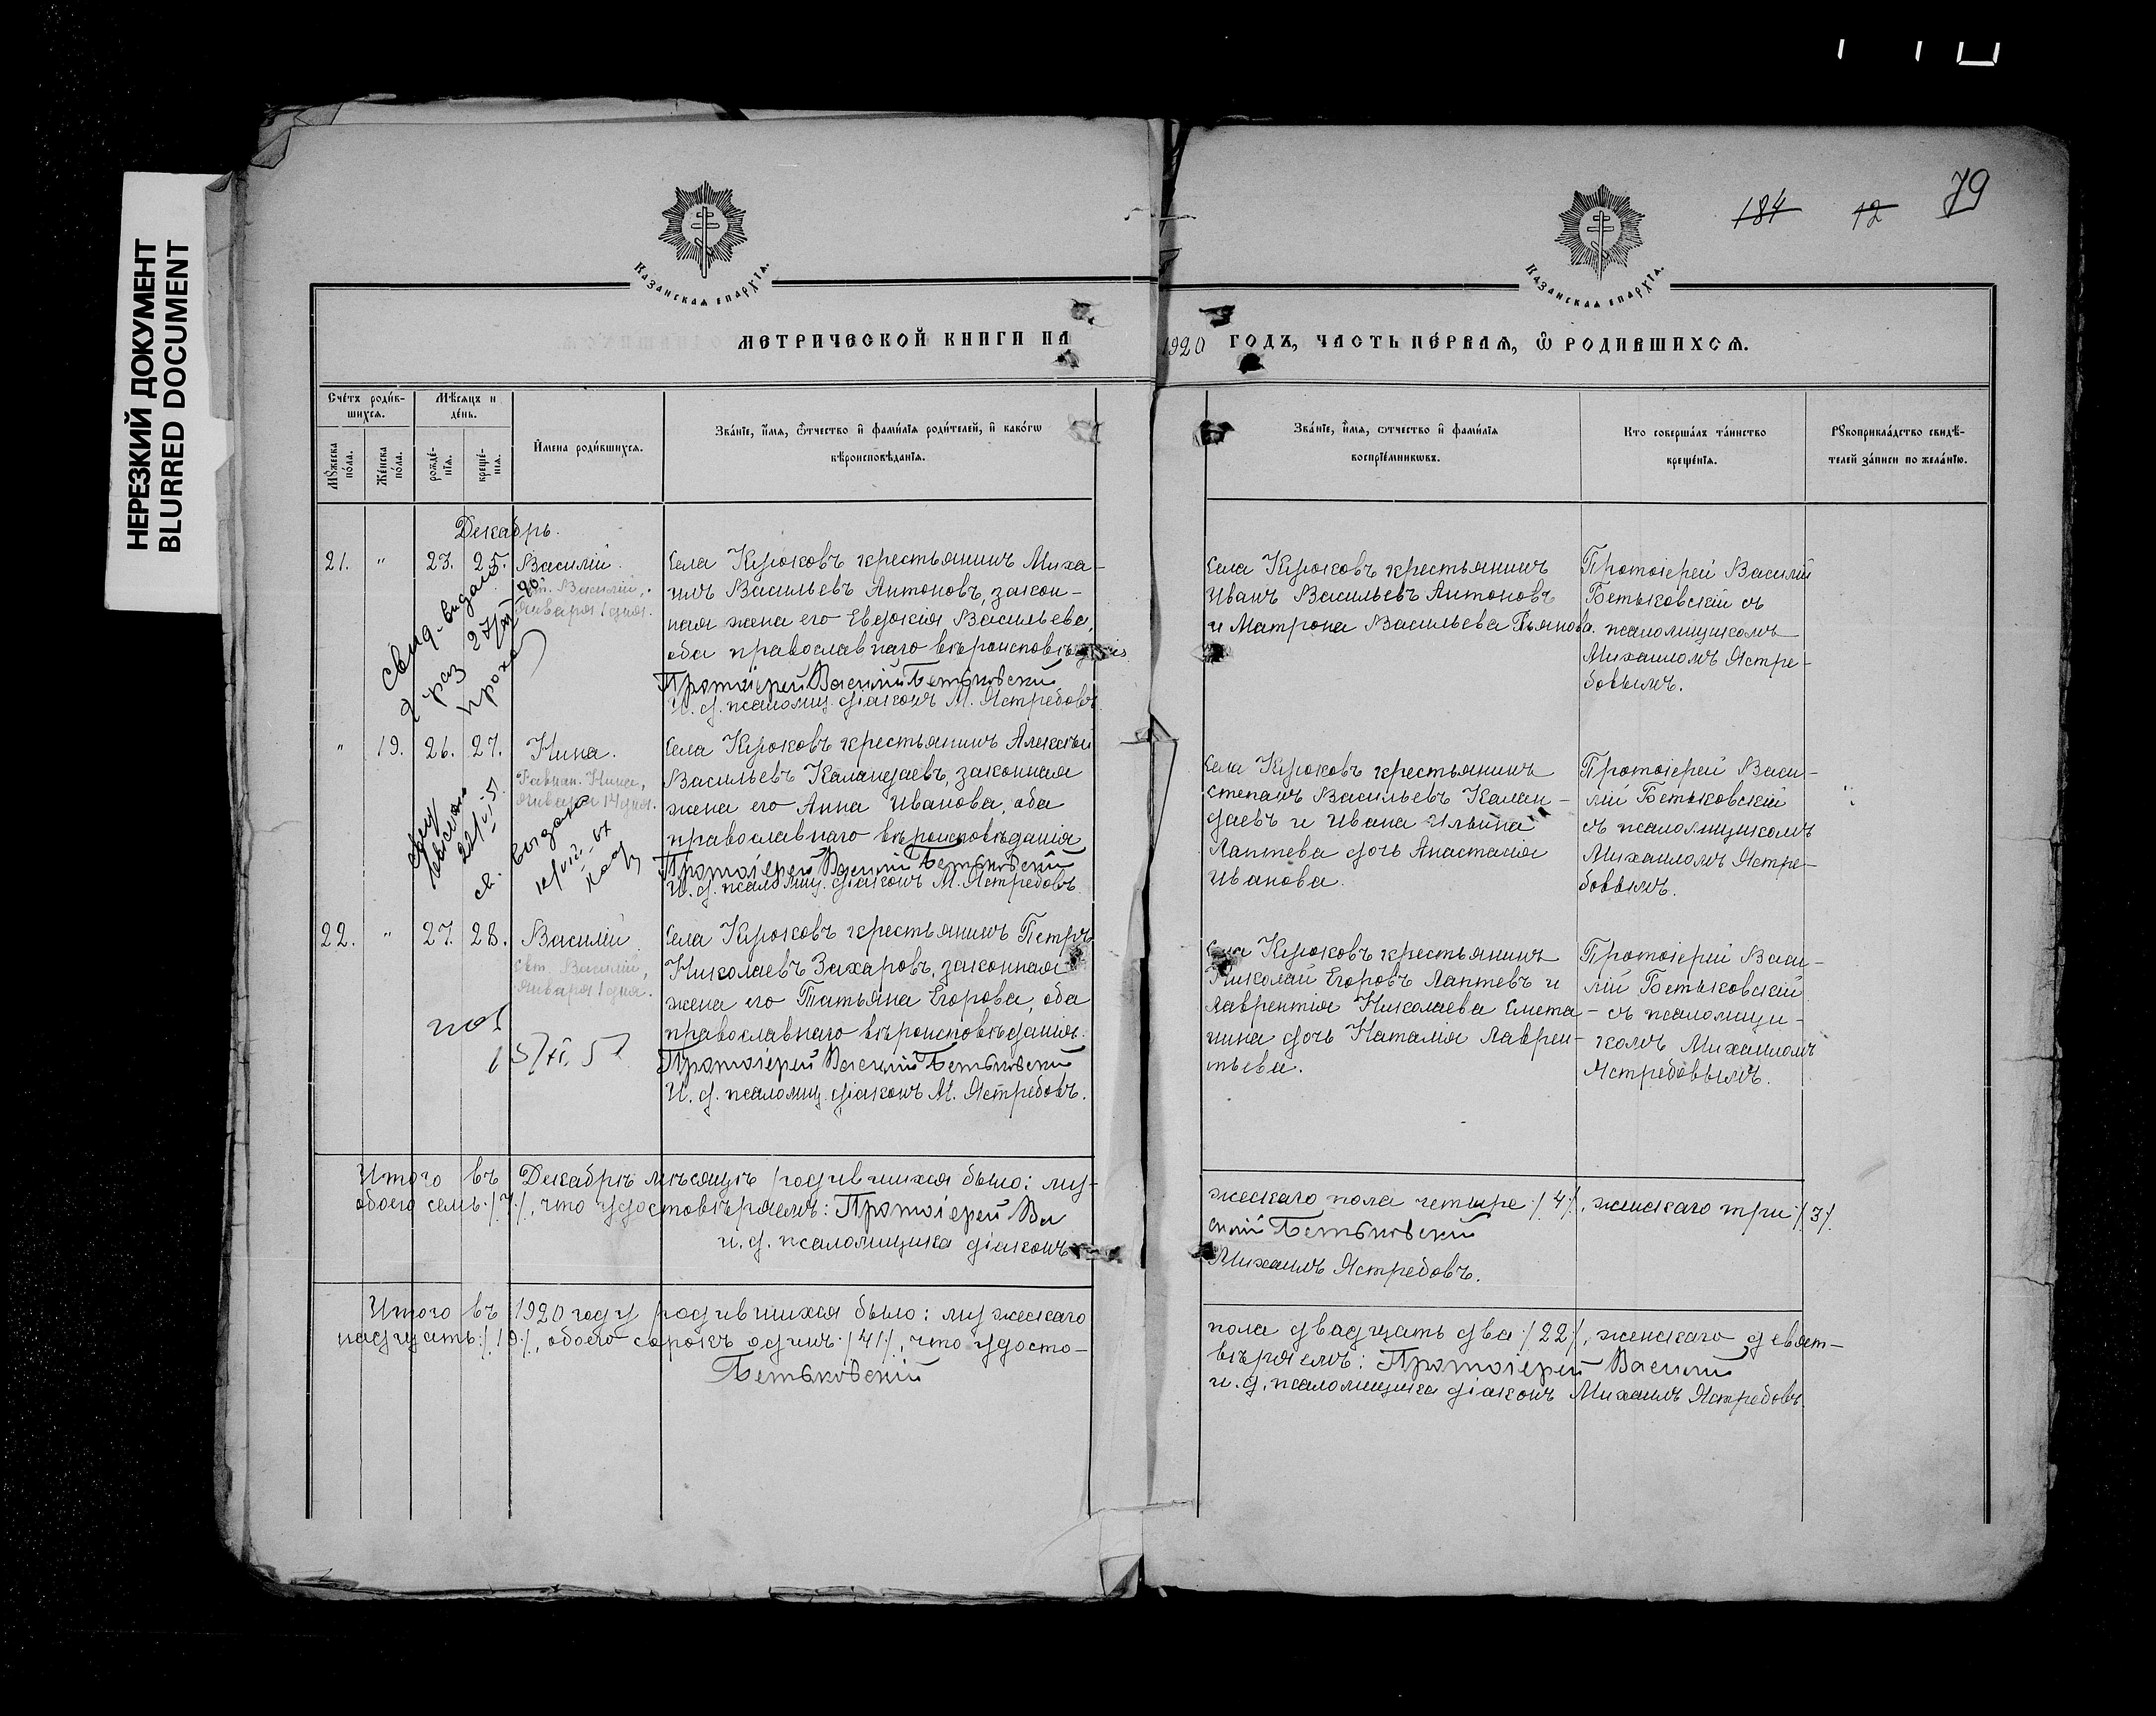 НЕРЕЗКИЙ ДОКУМЕНТ
BLURRED DOCUMENT
184 12 79
Казанская епархїа.
Казанская епархїа.
МЕТРИЧЕСКОЙ КНИГИ НА 1920 ГОДЪ, ЧАСТЬ ПЕ́РВАЯ, Ѽ РОДИВШИХСѦ.
Сче́тъ роди́в-
шихсѧ.
Мꙋ́жеска по́ла.
Же́нска по́ла.
Мѣ́сѧцъ и
де́нь.
рожде́-
нїѧ.
креще́-
нїѧ.
И҆мена роди́вшихсѧ.
Зва́нїе, и҆́мѧ, ѻ҆́тчество и҆ фами́лїѧ роди́телей, и҆ како́гѡ
вѣроисповѣ́данїѧ.
Зва́нїе, и҆́мѧ, ѻ҆́тчество и҆ фами́лїѧ
воспрїе́мникѡвъ.
Кто соверша́лъ та́инство
креще́нїѧ.
Рꙋкоприкла́дство свидѣ́-
телей за́писи по жела́нїю.
Декабрь.
21. " 23. 25. Василій.
Свт. Василій,
Января 1 дня.
Свид. выдано
2 раз
Села Крюковъ крестьянинъ Миха-
илъ Васильевъ Антоновъ, закон-
ная жена его Евдокія Васильева,
оба православнаго вѣроисповѣданія
Протоіерей Василій Бетьковскій
И. д. псаломщ. діаконъ М. Ястребовъ
Села Крюковъ крестьянинъ
Иванъ Васильевъ Антоновъ
и Матрона Васильева
Протоіерей Василій
Бетьковскій съ
псаломщикомъ
Михаиломъ Ястре-
бовымъ.
" 19. 26. 27. Нина.
Равноап. Нина,
Января 14 дня.
св. выдано
Села Крюковъ крестьянинъ Алексѣй
Васильевъ Каландаевъ, законная
жена его Анна Иванова, оба
православнаго вѣроисповѣданія
Протоіерей Василій Бетьковскій
И. д. псаломщ. діаконъ М. Ястребовъ
Села Крюковъ крестьянинъ
Степанъ Васильевъ Калан-
даевъ и Ивана Ильина
Лаптева дочь Анастасія
Иванова.
Протоіерей Васи-
лій Бетьковскій
съ псаломщикомъ
Михаиломъ Ястре-
бовымъ.
22. " 27. 28. Василій
Свт. Василій,
Января 1 дня.
Села Крюковъ крестьянинъ Петръ
Николаевъ Захаровъ, законная
жена его Татьяна Егорова, оба
православнаго вѣроисповѣданія.
Протоіерей Василій Бетьковскій
И. д. псаломщ. діаконъ М. Ястребовъ.
Села Крюковъ крестьянинъ
Николай Егоровъ Лаптевъ и
Лаврентія Николаева Смета-
нина дочь Наталія Лаврен-
тьева.
Протоіерей Васи-
лій Бетьковскій
съ псаломщи-
комъ Михаиломъ
Ястребовымъ.
Итого въ Декабрѣ мѣсяцѣ родившихся было: му-
жескаго пола четыре /4/, женскаго три /3/.
обоего семь /7/, что удостовѣряемъ: Протоіерей Ва
силій Бетьковскій
и. д. псаломщика діаконъ
Михаилъ Ястребовъ.
Итого въ 1920 году родившихся было: мужескаго
пола двадцать два /22/, женскаго девят-
надцать /19/, обоего сорокъ одинъ /41/, что удосто-
вѣряемъ: Протоіерей Василій
Бетьковскій
и. д. псаломщика діаконъ Михаилъ Ястребовъ.